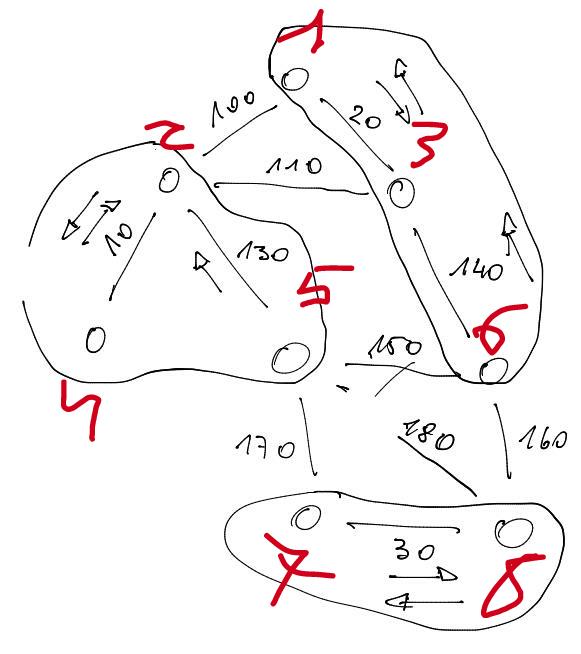 1
100
20
3
2
110
10
130
5
140
6
150
4
170
180
160
30
7
8